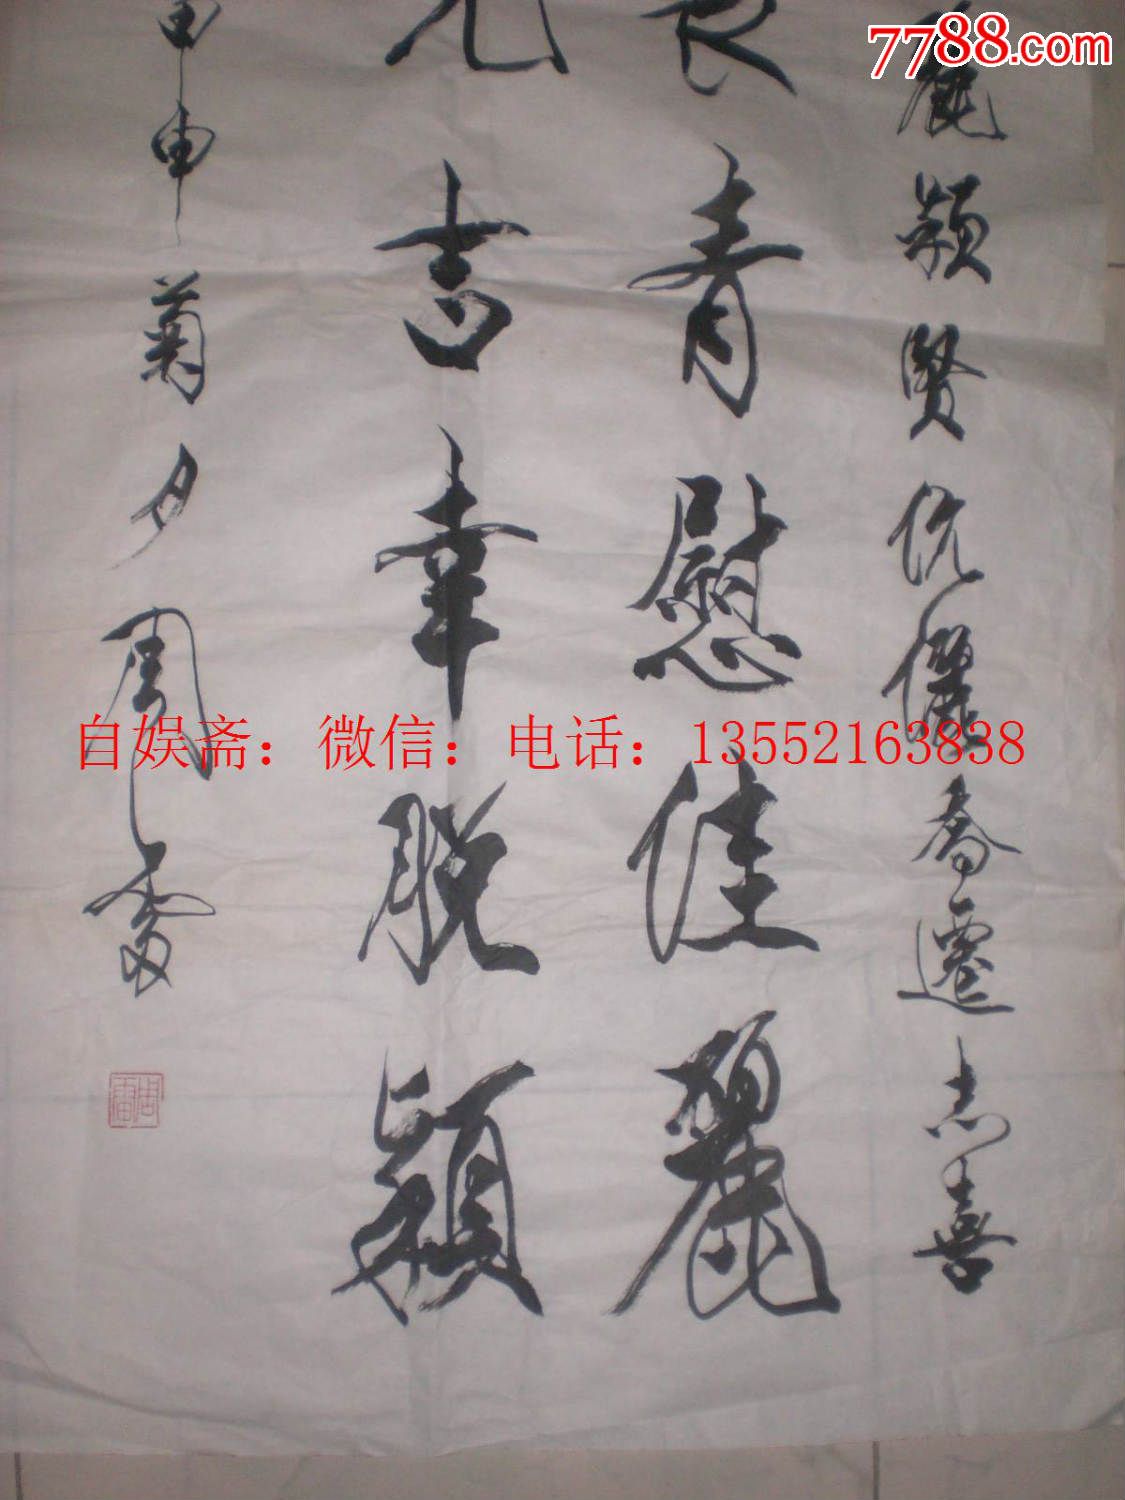 7788.com
麗颖賢伉儷喬遷志喜
青慰佳麗
吉幸脱颖
甲申菊夕周雷
自娱斋：微信：电话：13552163838
周雷